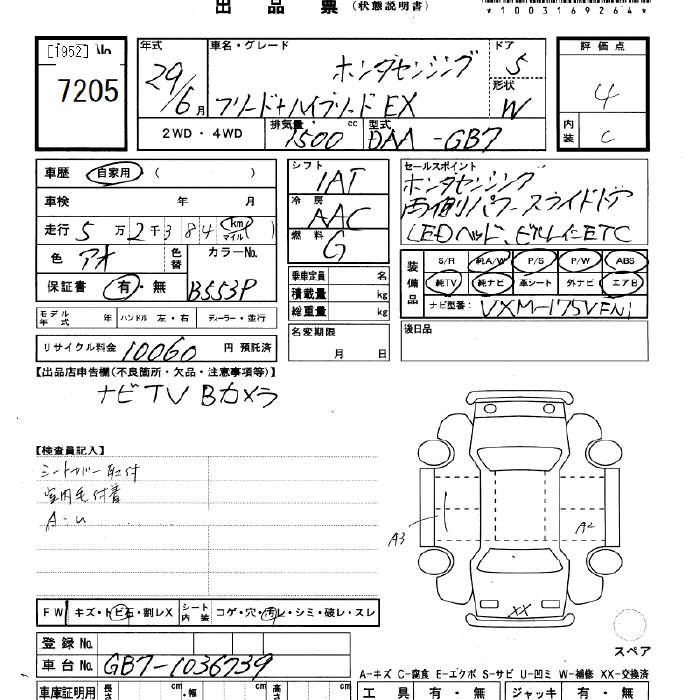 出品票 (状態説明書)
*1003169264*
[1952]
7205
年式 29/6月
車名・グレード ホンダセンシング
フリード+ハイブリード EX
ドア 5
形状 W
2WD・4WD
排気量 1500 cc
型式 DAA-GB7
評価点 4
内装 C
車歴 自家用 ( )
車検 年 月
走行 5万2千384 km マイル
色 アオ 色替 カラーNo.
保証書 有・無 B553P
モデル年式 年 ハンドル 左・右 ディーラー・並行
リサイクル料金 10060 円 預託済
シフト IAT
冷房 AAC
燃料 G
乗車定員 名
積載量 kg
総重量 kg
名変期限
月 日
セールスポイント
ホンダセンシング
両側パワースライドドア
LEDヘッド、ビルトインETC
装備品 S/R 純A/W P/S P/W ABS
純TV 純ナビ 革シート 外ナビ エアB
ナビ型番:
後日品
【出品店申告欄(不良箇所・欠品・注意事項等)】
ナビTV Bカメラ
【検査員記入】
シートカバー取付
室内毛付着
A3
A2
XX
スペア
FW キズ・トビ石・割レX シート内装 コゲ・穴・汚レ・シミ・破レ・スレ
登録No.
車台No. GB7-1036739
A-キズ C-腐食 E-エクボ S-サビ U-凹ミ W-補修 XX-交換済
車庫証明用 長さ cm ・幅 cm 高さ cm
工具 有・無 ジャッキ 有・無